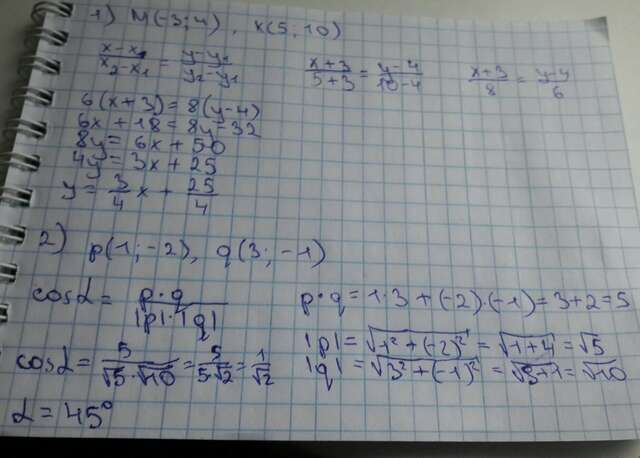 1) M(-3;4), K(5;10)
(x-x₁)/(x₂-x₁) = (y-y₁)/(y₂-y₁)   (x+3)/(5+3) = (y-4)/(10-4)   (x+3)/8 = (y-4)/6
6(x+3)=8(y-4)
6x+18=8y-32
8y=6x+50
4y=3x+25
y=3/4x+25/4
2) p(1;-2), q(3;-1)
cosα=p·q/|p|·|q|   p·q=1·3+(-2)·(-1)=3+2=5
|p|=√(1²+(-2)²)=√(1+4)=√5
cosα=5/(√5·√10)=5/(5√2)=1/√2   |q|=√(3²+(-1)²)=√(9+1)=√10
α=45°